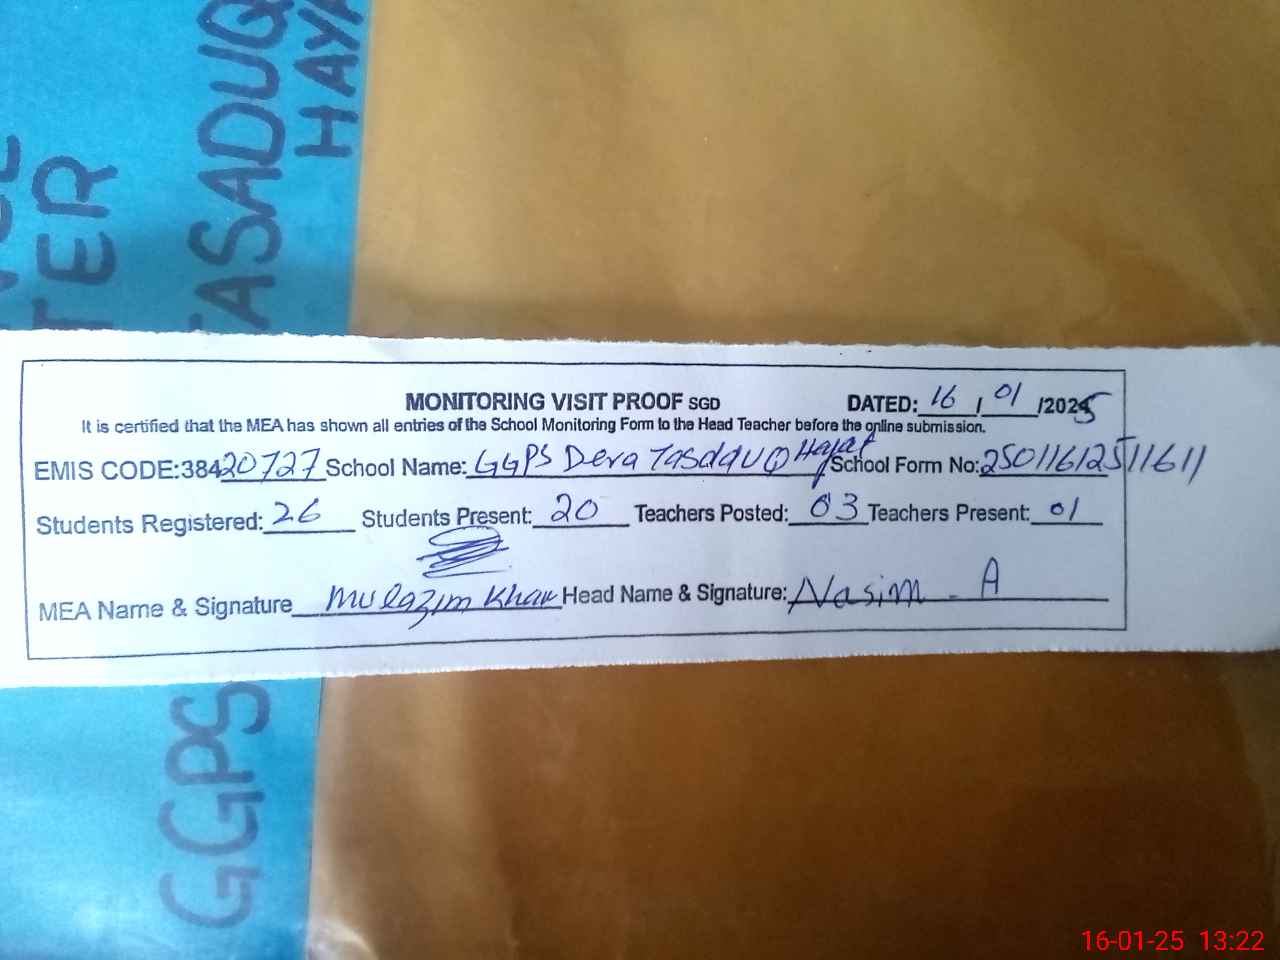 TASADUQ
HAYA
TER
MONITORING VISIT PROOF SGD DATED: 16 / 01 /2025
It is certified that the MEA has shown all entries of the School Monitoring Form to the Head Teacher before the online submission.
EMIS CODE:38420727 School Name: GGPS Dera Tasadduq Hayat School Form No: 2501161251161 1
Students Registered: 26 Students Present: 20 Teachers Posted: 03 Teachers Present: 01
MEA Name & Signature Mulazim Khan Head Name & Signature: Nasim. A
GGPS
16-01-25 13:22